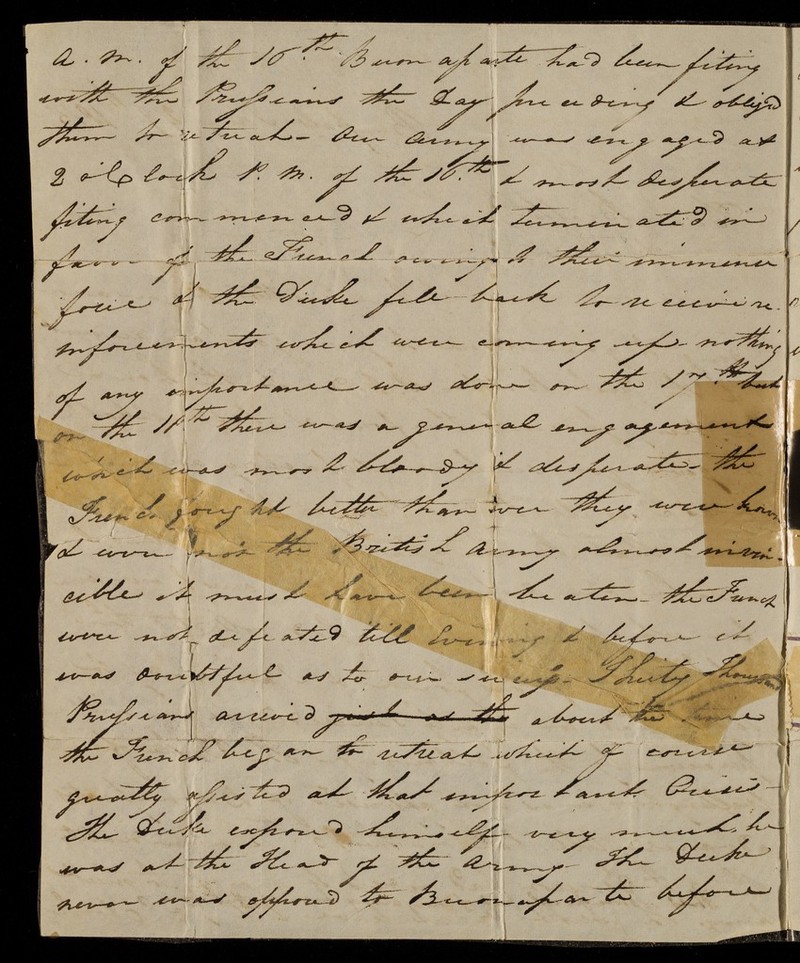 A.M. of the 16th. Buonaparte had been fiting
with the Prussians the day preceeding & obliged
them to retreat - Our army was engaged at
2 oClock P.M. of the 16.th & most desperate
fiting commenced & which terminated in
favor of the French owing to their immence
force & the Duke fell back to receive re-
inforcements which were coming up - nothing
of any importance was done on the 17th. but
on the 18th there was a general engagement
which was most bloody & desperate - the
French fought better than ever they were known
& were not the British Army almost invin-
cible it must have been beaten - the French
were not defeated till Evening & before it
was doubtful as to our success - Thirty Thousand
Prussians arrived jist as the about the time
the French began to retreat which of course
greatly assisted at that important Crisis -
The Duke exposed himself very much, he
was at the Head of the Army The Duke
never was opposed to Buonaparte before